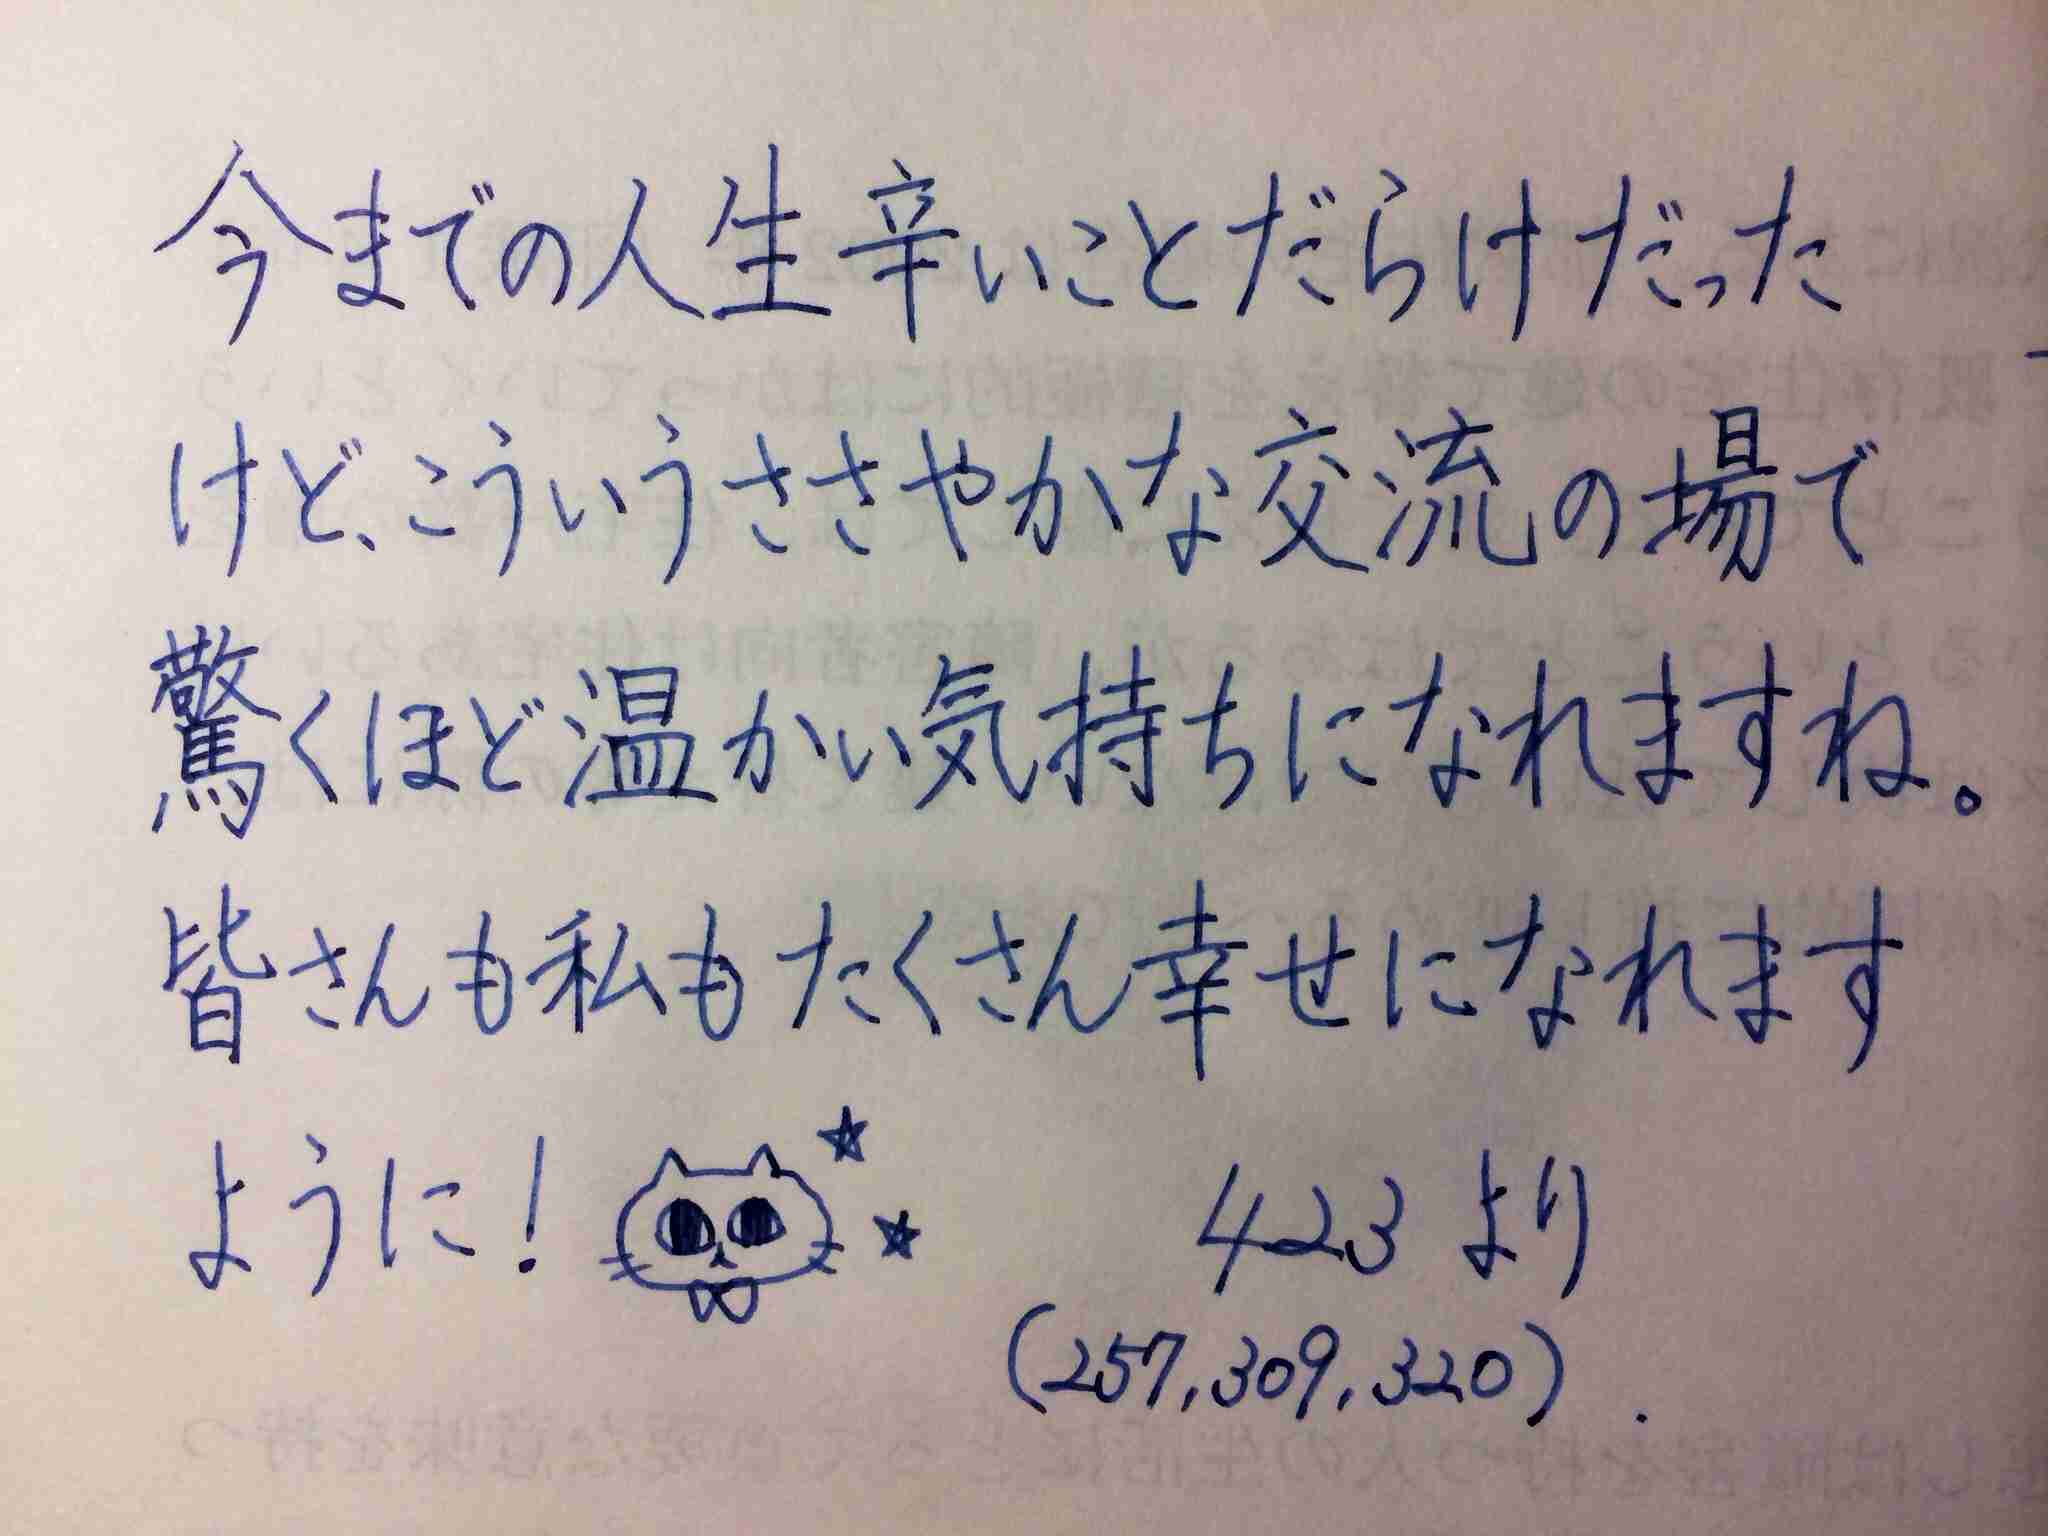 今までの人生辛いことだらけだった
けど、こういうささやかな交流の場で
驚くほど温かい気持ちになれますね。
皆さんも私もたくさん幸せになれます
ように!
423より
(257,309,320)